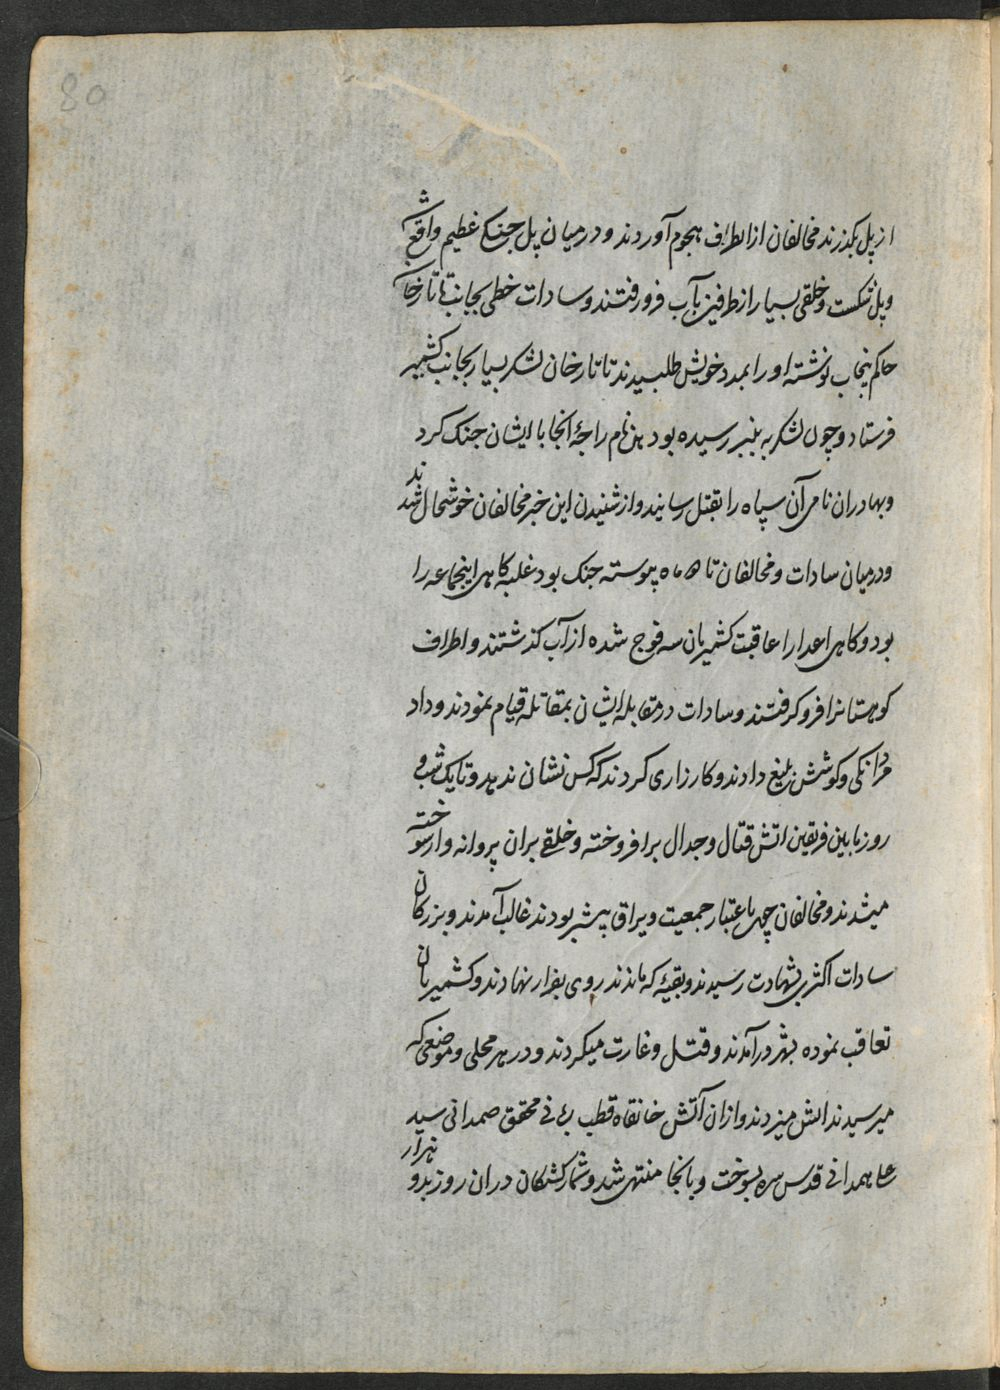 80
از پل بگذرند مخالفان از اطراف هجوم آوردند و در میان پل جنگ عظیم واقع ش
و پل شکست و خلقی بسیار از طرفین بآب فرو رفتند و سادات خطی بجانب تاتار خان
حاکم پنجاب نوشته او را بمدد خویش طلبیدند تاتار خان لشکر بسیار بجانب کشمیر
فرستاد و چون لشکر به بنبر رسیده بود راجۀ آنجا با ایشان جنک کرد
و بهادران نامی آن سپاه را بقتل رسانید و از شنیدن این خبر مخالفان خوشحال شدند
و درمیان سادات و مخالفان تا ماه پیوسته جنک بود غلبه کاهی اینجماعه را
بود و کاهی اعدا را عاقبت کشمیریان سه فوج شده از آب کذشتند و اطراف
کوهستانرا فرو کرفتند و سادات در مقابله ایشان بمقاتله قیام نمودند و داد
مردانکی و کوشش بلیغ دادند و کارزاری کردند که کس نشان ندهد و تا یک شب و
روز مابین فریقین اتش قتال و جدال برافروخته و خلقی بران پروانه وار سوخته
میشدند و مخالفان چون باعتبار جمعیت و یراق بیشتر بودند غالب آمدند و بزرکان
سادات اکثری بشهادت رسیدند و بقیۀ که ماندند روی بفرار نهادند و کشمیریان
تعاقب نموده بشهر درآمدند و قتل و غارت میکردند و در هر محلی و موضعی که
میرسیدند اتش میزدند و ازان آتش خانقاه قطب ربانی محقق صمدانی سید
علی همدانی قدس سره بسوخت و بانجا منتهی شد و شمار کشتکان دران روز بدو هزار